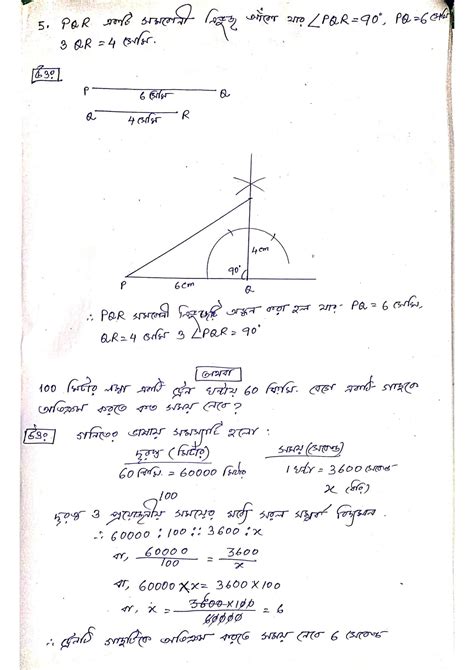 5. PQR একটি সমকোণী ত্রিভুজ আঁকো যার ∠PQR = 90°, PQ = 6 সেমি
ও QR = 4 সেমি.
উঃ
P Q
6 সেমি
Q R
4 সেমি
4cm
90°
P 6cm Q
∴ PQR সমকোণী ত্রিভুজটি অঙ্কন করা হল যার PQ = 6 সেমি,
QR = 4 সেমি ও ∠PQR = 90°
অথবা
100 মিটার লম্বা একটি ট্রেন ঘন্টায় 60 কিমি. বেগে একটি গাছকে
অতিক্রম করতে কত সময় নেবে?
উঃ গণিতের ভাষায় সমস্যাটি হলো :
দূরত্ব (মিটার) সময় (সেকেন্ড)
60 কিমি. = 60000 মিটার 1 ঘন্টা = 3600 সেকেন্ড
100 x (ধরি)
দূরত্ব ও প্রয়োজনীয় সময়ের মধ্যে সরল সম্পর্ক বিদ্যমান.
∴ 60000 : 100 :: 3600 : x
বা, 60000/100 = 3600/x
বা, 60000 × x = 3600 × 100
বা, x = 3600×100/60000 = 6
∴ ট্রেনটি গাছটিকে অতিক্রম করতে সময় নেবে 6 সেকেন্ড